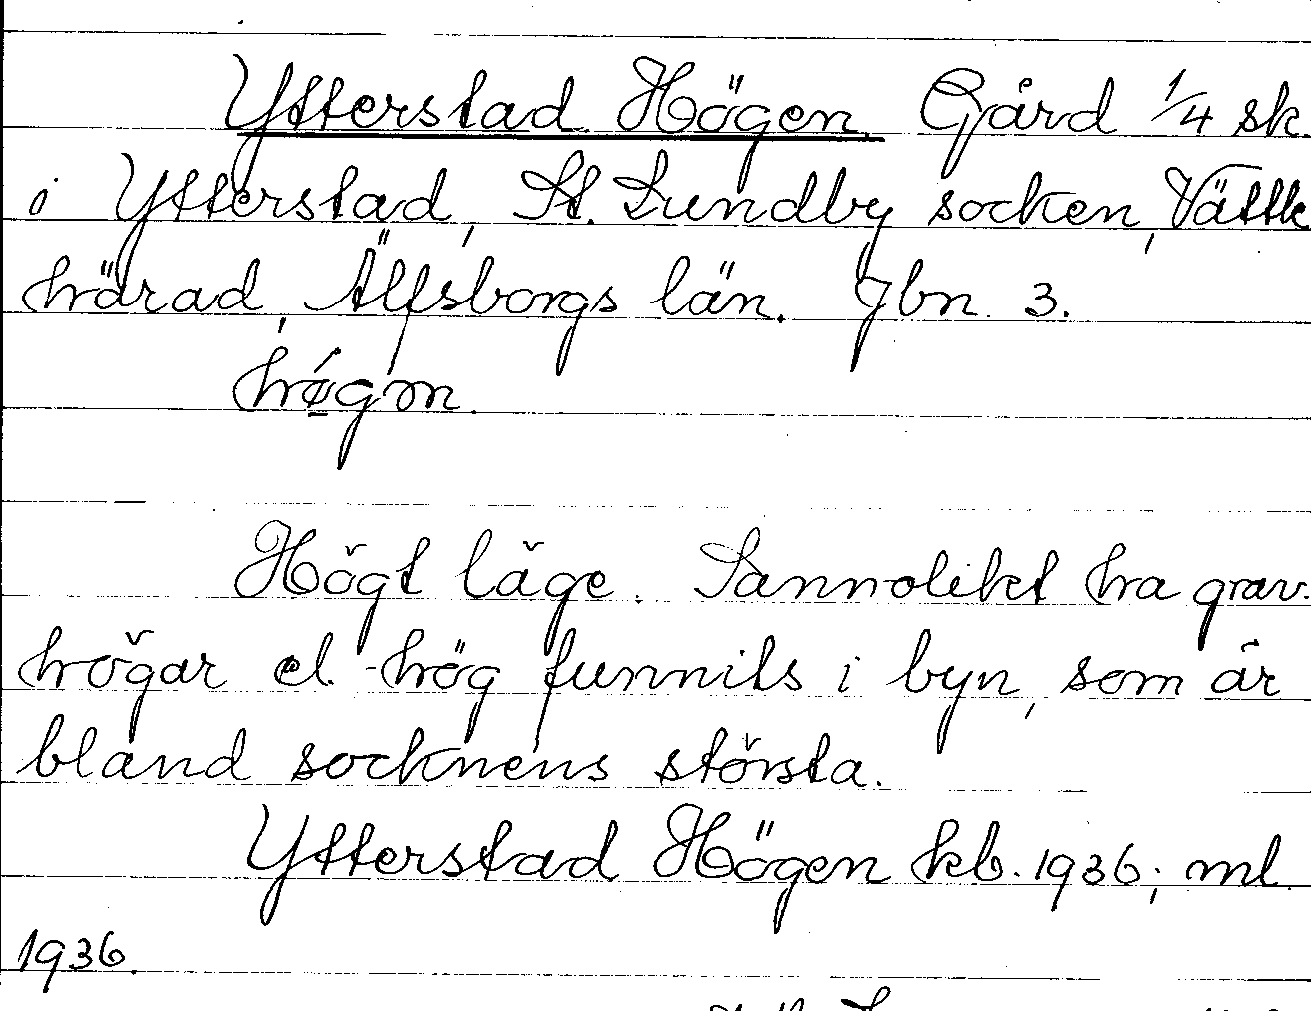 Ytterstad Högen. Gård 1/4 sk.
i Ytterstad, St. Lundby socken, Vättle
härad, Älfsborgs län. Jbn 3.
Högt läge. Sannolikt ha grav-
högar el. -hög funnits i byn, som är
bland socknens största.
Ytterstad Högen kb. 1936; ml
1936.